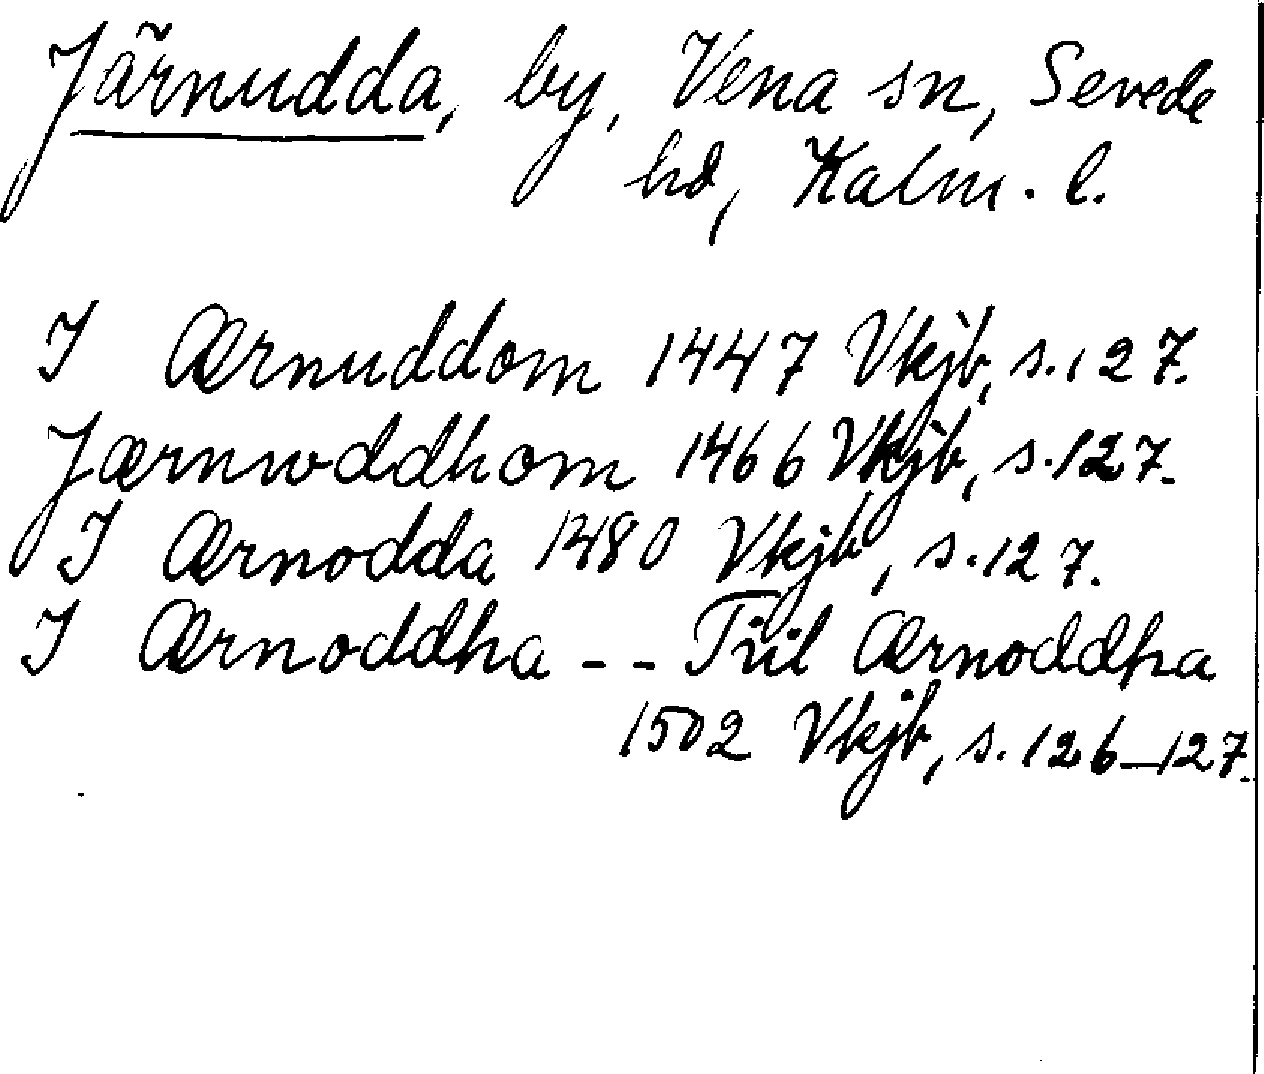 Järnudda, by, Vena sn, Sevede
hd, Kalm. l.
I Ærnuddom 1447 Vkjb, s. 127.
Jærnwddhom 1466 Vkjb, s. 127.
I Ærnodda 1480 Vkjb, s. 127.
I Ærnoddha - - Tiil Ærnoddha
1502 Vkjb, s. 126-127.